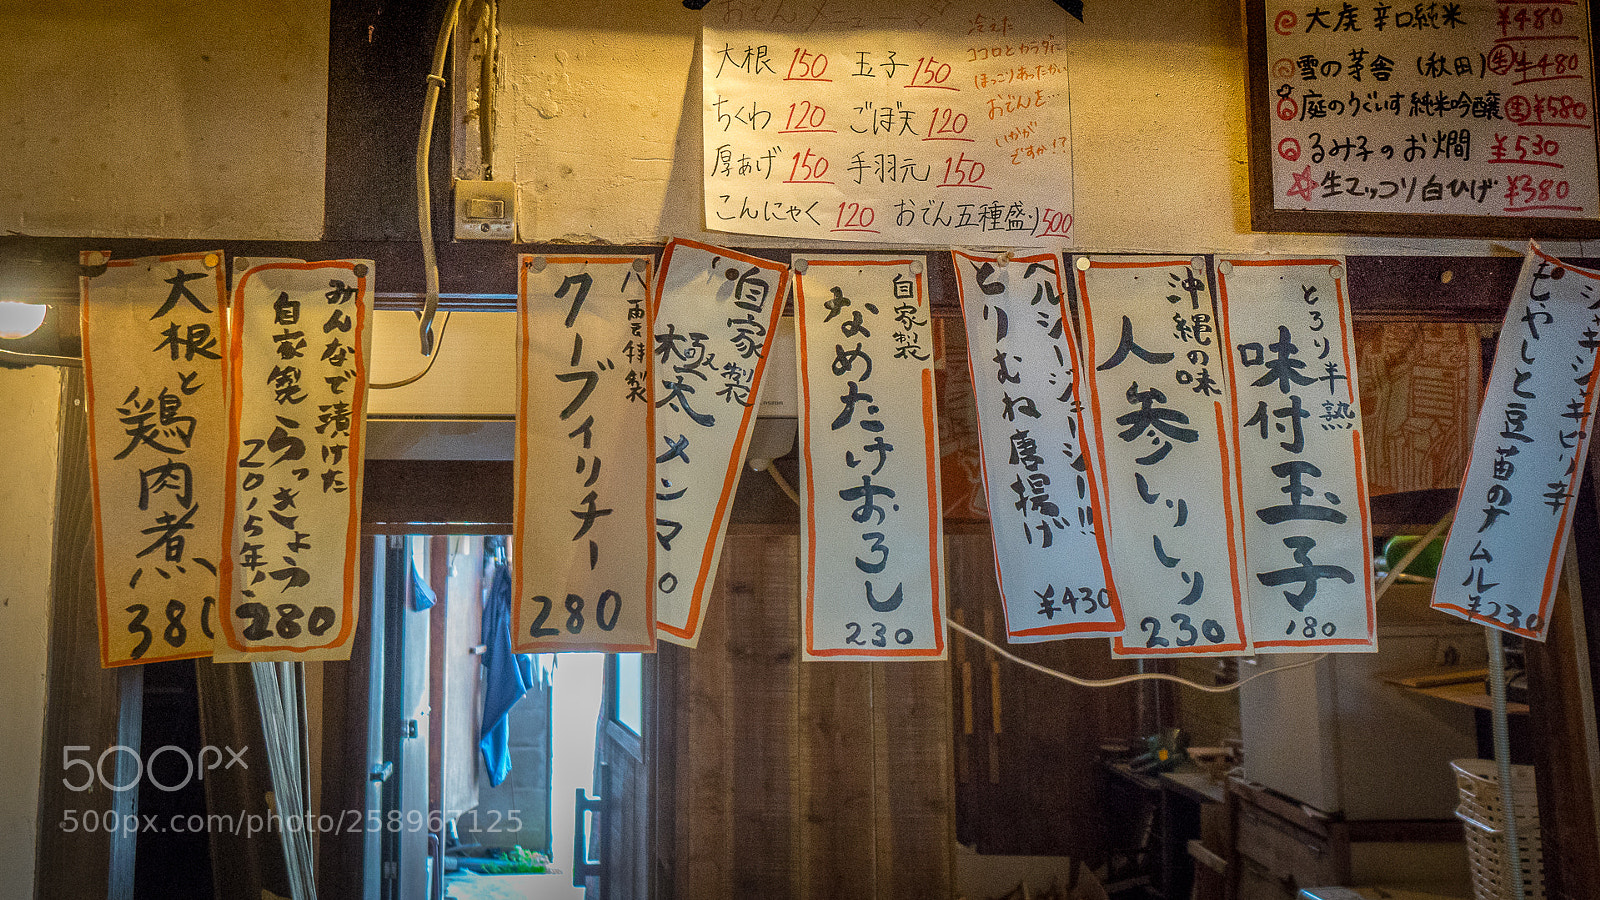 おでんメニュー
大根 150 玉子 150
ちくわ 120 ごぼ天 120
厚あげ 150 手羽元 150
こんにゃく 120 おでん五種盛り 500
冷えた
ココロとカラダに
ほっこりあったかい
おでんを…
いかが
ですか!?
大虎 辛口純米 ¥480
雪の茅舎 (秋田) 生 ¥480
庭のうぐいす 純米吟醸 生 ¥580
るみ子のお燗 ¥530
生マッコリ白ひげ ¥380
大根と
鶏肉煮
380
みんなで漬けた
自家製らっきょう
2015年
280
八雲特製
クーブイリチー
280
自家製
極太メンマ
自家製
なめたけおろし
230
ヘルシージューシー!!
とりむね唐揚げ
¥430
沖縄の味
人参しりしり
230
とろり半熟
味付玉子
180
シャキシャキピリ辛
もやしと豆苗のナムル
¥230
500px
500px.com/photo/258967125